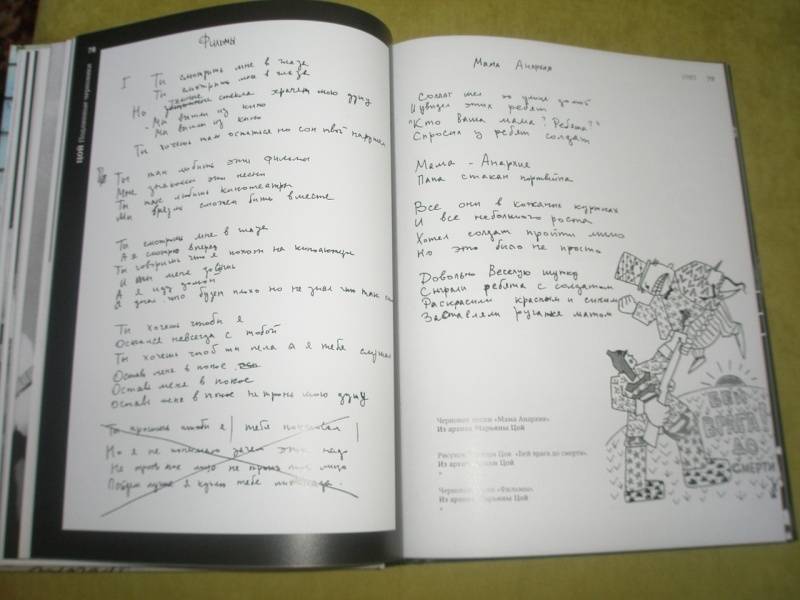 78
ЦОЙ Подлинные черновики
Фильмы
I Ты смотришь мне в глаза
Ты смотришь мне в глаза
темные
Но стекла хранят мою душу
Мы вышли из кино
Мы вышли из кино
Ты хочешь там остаться но сон твой нарушен
Ты так любишь эти фильмы
Мне знакомы эти песни
Ты так любишь кинотеатры
Мы вряд ли сможем быть вместе
Ты смотришь мне в глаза
А я смотрю вперед
Ты говоришь что я похож на киноактера
И ты меня
А я иду домой
Я знал что будет плохо но не знал что так
Ты хочешь чтобы я
Остался навсегда с тобой
Ты хочешь чтоб ты пела а я тебя слушал
Оставь меня в покое
Оставь меня в покое
Оставь меня в покое не тронь мою душу
Ты просишь чтобы я тебя
Но я не понимаю зачем это надо
Не трожь мое лицо не трожь мое лицо
Пойдем лучше я куплю тебе
Мама Анархия
79
Солдат шел по улице домой
И увидел этих ребят
"Кто ваша мама? Ребята?"
Спросил у ребят солдат
Мама - Анархия
Папа стакан портвейна
Все они в кожаных куртках
И все небольшого роста
Хотел солдат пройти мимо
Но это было не просто
Довольно Веселую шутку
Сыграли ребята с солдатом
Раскрасили красным и синим
Заставляли ругаться матом
БЕЙ
ВРАГА
ДО
СМЕРТИ
Черновик песни «Мама Анархия»
Из архива Марьяны Цой
Рисунок Виктора Цоя «Бей врага до смерти»
Из архива Марьяны Цой
Черновик песни «Фильмы»
Из архива Марьяны Цой